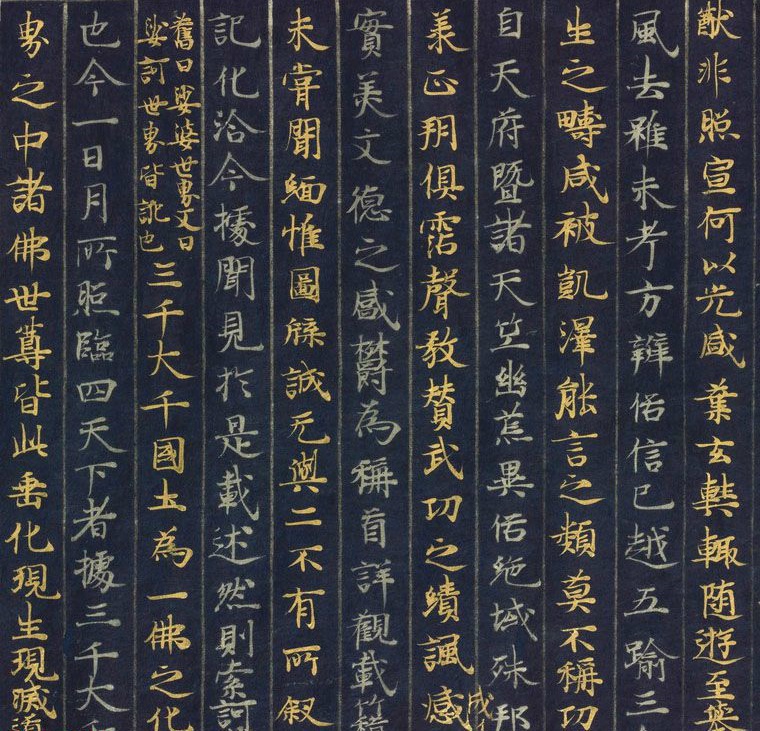 猷非照宣何以光咸葉玄奘輙随遊至舉
風去雖未考方辯俗信已越五踰三
生之疇咸被凱澤能言之類莫不稱功
自天府暨諸天竺幽荒異俗絶域殊邦
承正朔俱霑聲教贊武功之績諷感成
實美文德之感欝為稱首詳觀載籍
未甞聞緬惟圖牒誠无與二不有所叙
記化洽今據聞見於是載述然則索訶
舊曰娑婆世界文曰
娑訶世界皆訛也
三千大千國土為一佛之化
也今一日月所照臨四天下者據三千大千
界之中諸佛世尊皆此垂化現生現滅導